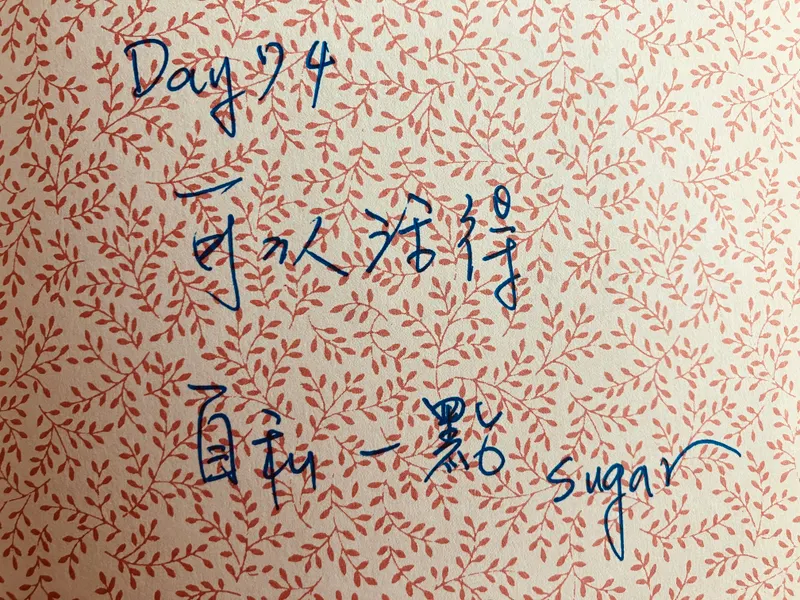 Day 74
可以活得
自私一點
sugar